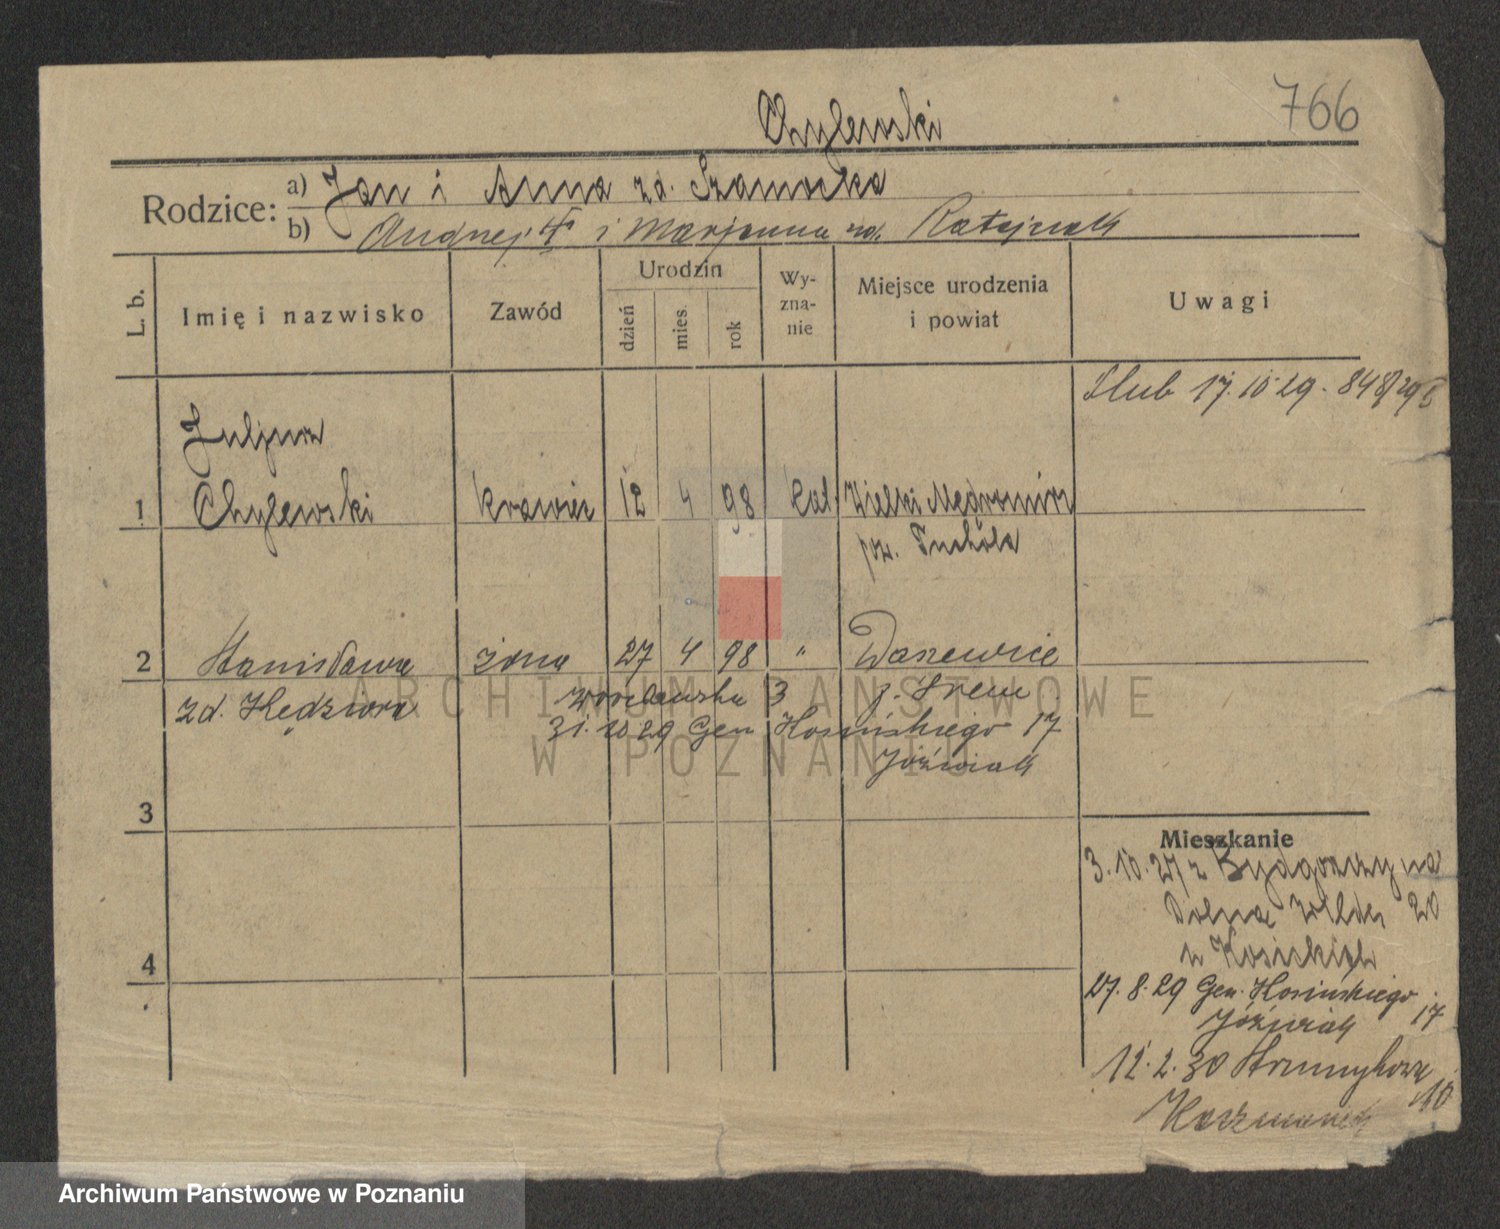 766
Chylewski
Rodzice: a) Jan i Anna zd. Szamocka
b) Andrzej i Marjanna zd. Ratajczak
L. b.
Imię i nazwisko
Zawód
Urodzin
dzień
mies.
rok
Wy-
zna-
nie
Miejsce urodzenia
i powiat
Uwagi
Ślub 17.10.29. 848/29
Juljan
1 Chylewski krawiec 12 4 98 kat. Wielki Mędromierz
pow. Tuchola
2 Stanisława żona 27 4 98 " Daszewice
zd. Kędziora 3 p. Śrem
31.10.29 Gen. Kosińskiego 17
Jóźwiak
3
4
Mieszkanie
3.10.27 z Bydgoszczy na
Dolna Wilda 20
27.8.29 Gen. Kosińskiego 17
Jóźwiak
12.2.30 Strumykowa 10
Kaczmarek
ARCHIWUM PAŃSTWOWE
W POZNANIU
Archiwum Państwowe w Poznaniu